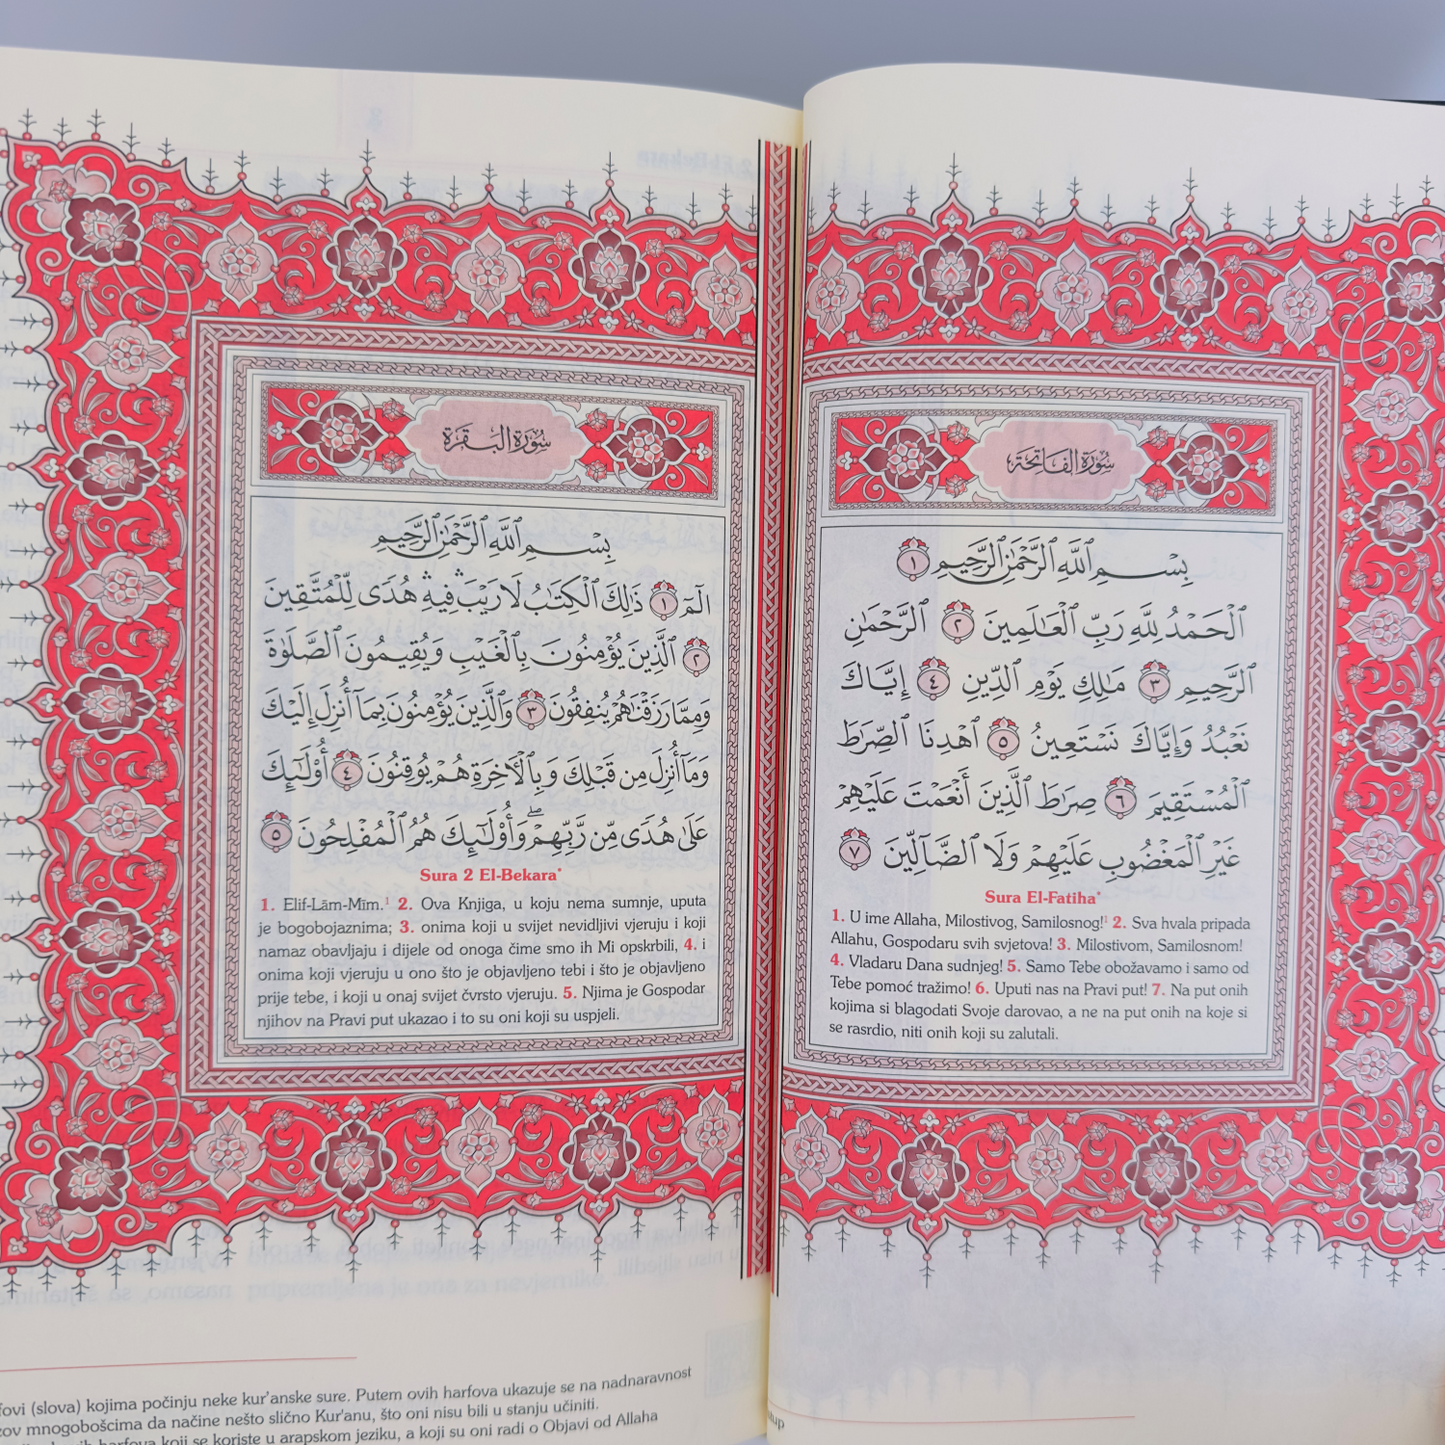 سُورَةُ الفَاتِحَةِ
بِسْمِ ٱللَّهِ ٱلرَّحْمَٰنِ ٱلرَّحِيمِ ١
ٱلْحَمْدُ لِلَّهِ رَبِّ ٱلْعَٰلَمِينَ ٢ ٱلرَّحْمَٰنِ
ٱلرَّحِيمِ ٣ مَٰلِكِ يَوْمِ ٱلدِّينِ ٤ إِيَّاكَ
نَعْبُدُ وَإِيَّاكَ نَسْتَعِينُ ٥ ٱهْدِنَا ٱلصِّرَٰطَ
ٱلْمُسْتَقِيمَ ٦ صِرَٰطَ ٱلَّذِينَ أَنْعَمْتَ عَلَيْهِمْ
غَيْرِ ٱلْمَغْضُوبِ عَلَيْهِمْ وَلَا ٱلضَّآلِّينَ ٧
Sura El-Fatiha*
1. U ime Allaha, Milostivog, Samilosnog!¹ 2. Sva hvala pripada
Allahu, Gospodaru svih svjetova! 3. Milostivom, Samilosnom!
4. Vladaru Dana sudnjeg! 5. Samo Tebe obožavamo i samo od
Tebe pomoć tražimo! 6. Uputi nas na Pravi put! 7. Na put onih
kojima si blagodati Svoje darovao, a ne na put onih na koje si
se rasrdio, niti onih koji su zalutali.
سُورَةُ البَقَرَةِ
بِسْمِ ٱللَّهِ ٱلرَّحْمَٰنِ ٱلرَّحِيمِ
الٓمٓ ١ ذَٰلِكَ ٱلْكِتَٰبُ لَا رَيْبَ ۛ فِيهِ ۛ هُدًى لِّلْمُتَّقِينَ
٢ ٱلَّذِينَ يُؤْمِنُونَ بِٱلْغَيْبِ وَيُقِيمُونَ ٱلصَّلَوٰةَ
وَمِمَّا رَزَقْنَٰهُمْ يُنفِقُونَ ٣ وَٱلَّذِينَ يُؤْمِنُونَ بِمَآ أُنزِلَ إِلَيْكَ
وَمَآ أُنزِلَ مِن قَبْلِكَ وَبِٱلْءَاخِرَةِ هُمْ يُوقِنُونَ ٤ أُو۟لَٰٓئِكَ
عَلَىٰ هُدًى مِّن رَّبِّهِمْ ۖ وَأُو۟لَٰٓئِكَ هُمُ ٱلْمُفْلِحُونَ ٥
Sura 2 El-Bekara*
1. Elif-Lām-Mīm.¹ 2. Ova Knjiga, u koju nema sumnje, uputa
je bogobojaznima; 3. onima koji u svijet nevidljivi vjeruju i koji
namaz obavljaju i dijele od onoga čime smo ih Mi opskrbili, 4. i
onima koji vjeruju u ono što je objavljeno tebi i što je objavljeno
prije tebe, i koji u onaj svijet čvrsto vjeruju. 5. Njima je Gospodar
njihov na Pravi put ukazao i to su oni koji su uspjeli.
(slova) kojima počinju neke kur'anske sure. Putem ovih harfova ukazuje se na nadnaravnost
mnogobošcima da načine nešto slično Kur'anu, što oni nisu bili u stanju učiniti.
harfova koji se koriste u arapskom jeziku, a koji su oni radi o Objavi od Allaha